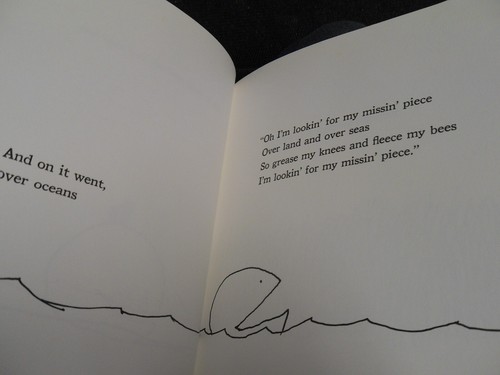 And on it went,
over oceans
"Oh I'm lookin' for my missin' piece
Over land and over seas
So grease my knees and fleece my bees
I'm lookin' for my missin' piece."